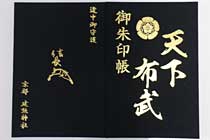 天下
布武
御朱印帳
道中御守護
京都 建勲神社